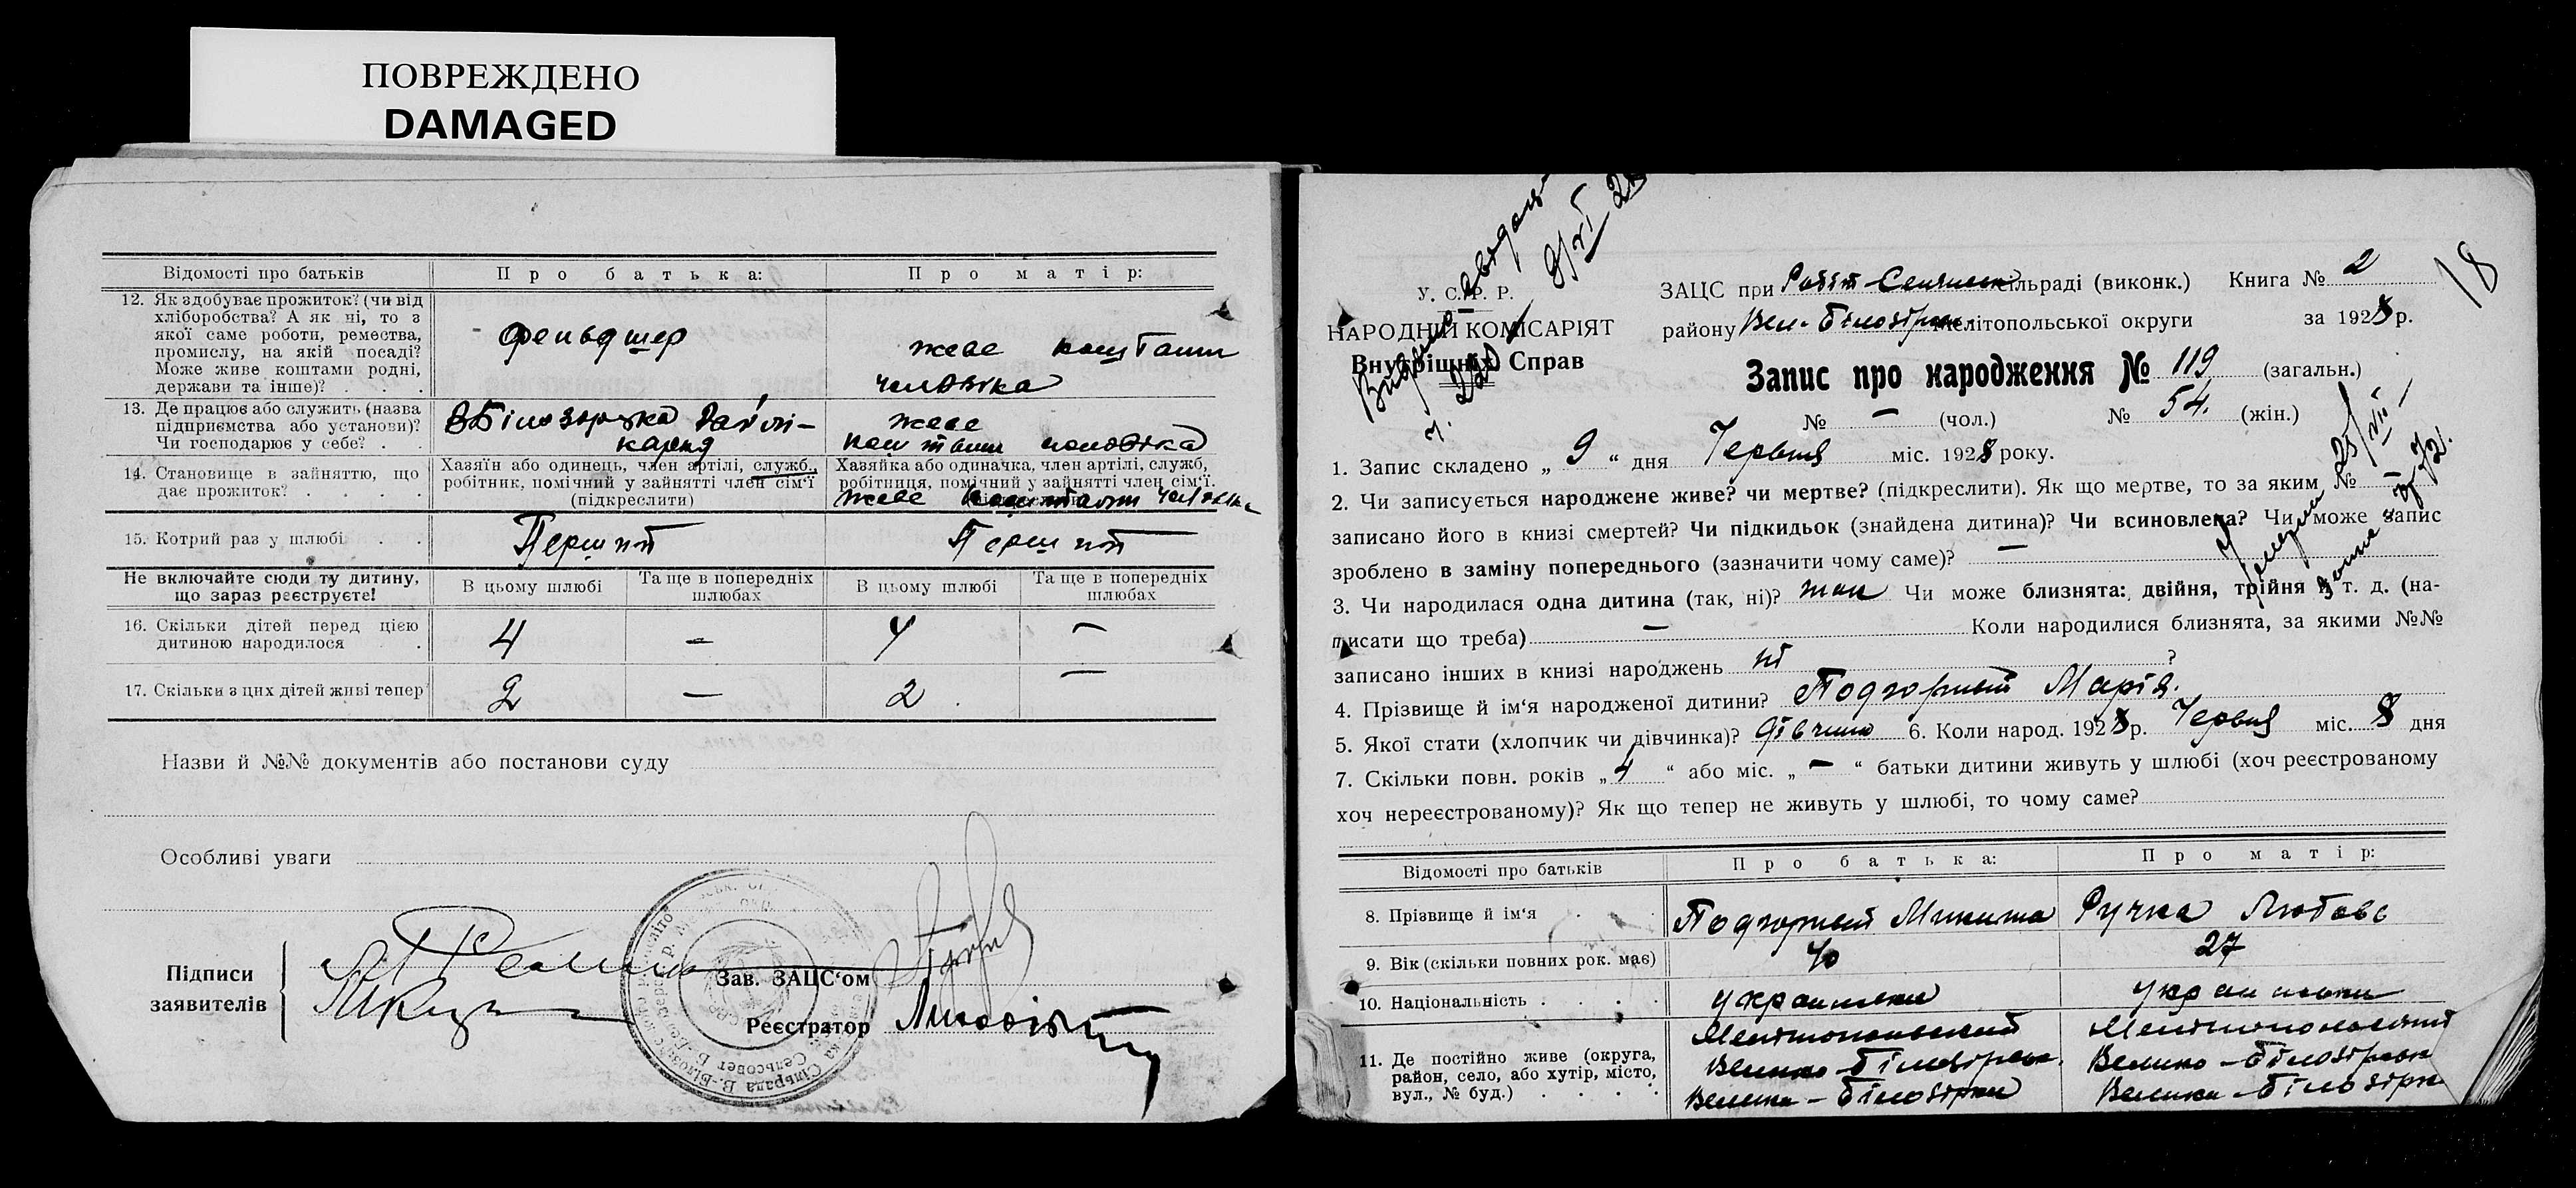 ПОВРЕЖДЕНО
DAMAGED
Відомості про батьків Про батька: Про матір:
12. Як здобуває прожиток? (чи від
хліборобства? А як ні, то з
якої саме роботи, ремества,
промислу, на якій посаді?
Може живе коштами родні,
держави та інше)? . . .
фельдшер
живе коштами
чоловіка
13. Де працює або служить (назва
підприємства або установи)?
Чи господарює у себе? . .
живе
коштами чоловіка
14. Становище в зайняттю, що
дає прожиток? . . . .
Хазяїн або одинець, член артілі, служб.,
робітник, помічний у зайнятті член сім'ї
(підкреслити)
Хазяйка або одиначка, член артілі, служб,
робітниця, помічний у зайнятті член сім'ї.
живе коштами
15. Котрий раз у шлюбі . . Перший Перший
Не включайте сюди ту дитину,
що зараз реєструєте!
В цьому шлюбі Та ще в попередніх
шлюбах
В цьому шлюбі Та ще в попередніх
шлюбах
16. Скільки дітей перед цією
дитиною народилося .
4 — 4 —
17. Скільки з цих дітей живі тепер 2 — 2 —
Назви й №№ документів або постанови суду
Особливі уваги
Підписи
заявителів
Зав. ЗАЦС'ом
Реєстратор
У. С. Р. Р.
НАРОДНІЙ КОМІСАРІЯТ
Внутрішніх Справ
ЗАЦС при сільраді (виконк.) Книга № 2
18
району Вел-Білозірськ Мелітопольської округи за 1928 р.
Запис про народження № 119 (загальн.)
№ — (чол.) № 54. (жін.)
1. Запис складено „ 9 “ дня Червня міс. 1928 року.
2. Чи записується народжене живе? чи мертве? (підкреслити). Як що мертве, то за яким № —
записано його в книзі смертей? Чи підкидьок (знайдена дитина)? Чи всиновлена? Чи може запис
зроблено в заміну попереднього (зазначити чому саме)? —
3. Чи народилася одна дитина (так, ні)? так Чи може близнята: двійня, трійня й т. д. (на-
писати що треба) — Коли народилися близнята, за якими №№
записано інших в книзі народжень ні ?
4. Прізвище й ім'я народженої дитини? Подгорный Марія.
5. Якої стати (хлопчик чи дівчинка)? дівчина 6. Коли народ. 1928 р. Червня міс. 8 дня
7. Скільки повн. років „ 4 “ або міс. „ — “ батьки дитини живуть у шлюбі (хоч реєстрованому
хоч нереєстрованому)? Як що тепер не живуть у шлюбі, то чому саме?
Відомості про батьків Про батька: Про матір:
8. Прізвище й ім'я . . Подгорный Микита Ручка Любовь
9. Вік (скільки повних рок. має) 40 27
10. Національність . . . .
11. Де постійно живе (округа,
район, село, або хутір, місто,
вул., № буд.) . . . .
Мелітопольський
Велико-Білозірськ.
Велика-Білозірка
Мелітопольський
Велико-Білозірськ
Велика-Білозірк